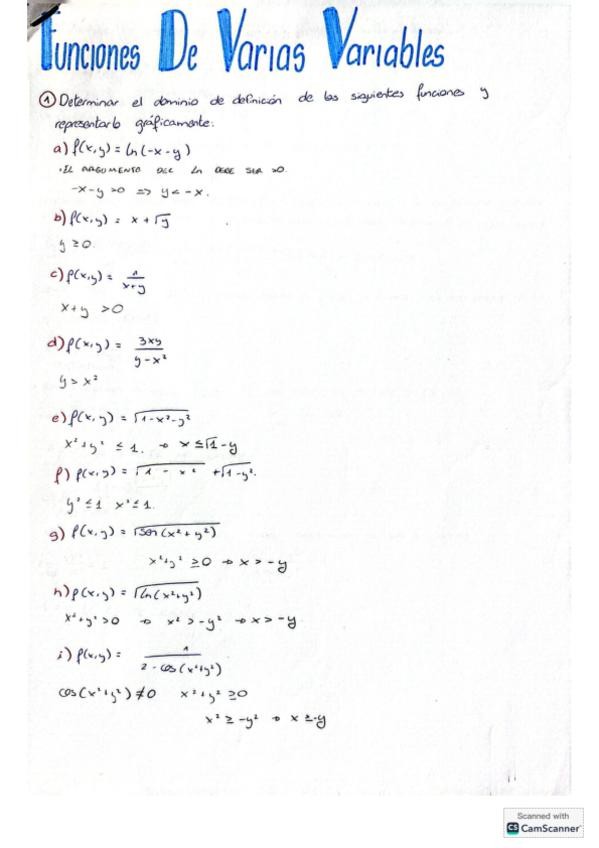 Funciones De Varias Variables
① Determinar el dominio de definición de las siguientes funciones y
representarlo gráficamente:
a) f(x,y) = ln(-x-y)
· EL ARGUMENTO DEL Ln DEBE SER >0.
-x-y >0 => y < -x.
b) f(x,y) = x + √y
y ≥ 0.
c) f(x,y) = 1/(x+y)
x+y >0
d) f(x,y) = 3xy/(y-x²)
y > x²
e) f(x,y) = √(1-x²-y²)
x²+y² ≤ 1. → x ≤ √1 - y
f) f(x,y) = √(1 - x²) + √(1-y²).
y² ≤ 1 x² ≤ 1.
g) f(x,y) = √(sen(x²+y²))
x²+y² ≥ 0 → x > -y
h) f(x,y) = √(ln(x²+y²))
x²+y² > 0 → x² > -y² → x > -y
i) f(x,y) = 1/(2 - cos(x²+y²))
cos(x²+y²) ≠ 0 x²+y² ≥ 0
x² ≥ -y² → x ≥ -y
Scanned with
CS CamScanner